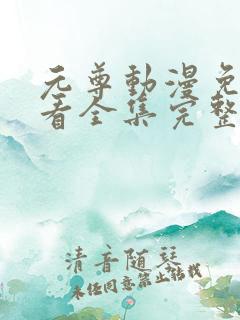 元尊動漫免
看全集完整
清音随琴
未经同意禁止转载